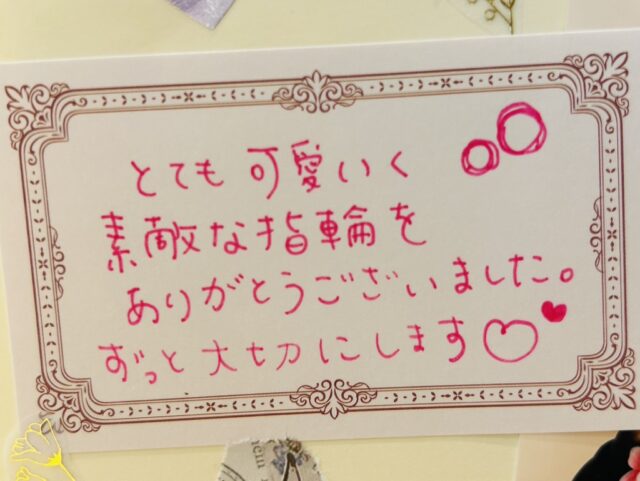 とても可愛いく
素敵な指輪を
ありがとうございました。
ずっと大切にします♡♥